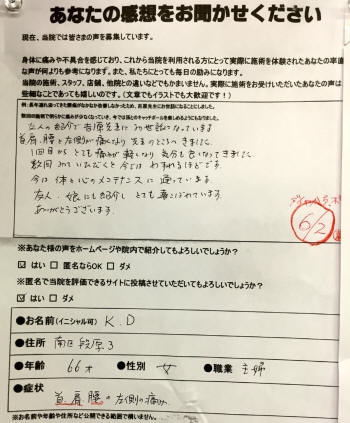 あなたの感想をお聞かせください
現在、当院では皆さまの声を募集しています。
身体に痛みや不具合を感じており、これから当院を利用される方にとって実際に施術を体験されたあなたの率直
な声が何よりも参考になります。また、私たちにとっても毎日の励みになります。
当院の施術、スタッフ、店舗、他院との違いなどでもかまいません。実際に施術をお受けいただいたあなたの声は
些細なことであっても嬉しいのです。（文章でもイラストでも大歓迎です！）
友人の紹介で吉原先生にお世話になっています
首、肩、腰と左側が痛くなり 先生のところにきました。
1回目からとても痛みが軽くなり、気分も良くなってきました。
数回みていただくと今では わすれるほどです。
今は体と心のメンテナンスに通っています。
友人、娘にも紹介し とても喜こばれています。
ありがとうございます。
6/2
※あなた様の声をホームページや院内で紹介してもよろしいでしょうか？
はい 匿名ならOK ダメ
※匿名で当院を評価できるサイトに投稿させていただいてもよろしいでしょうか？
はい ダメ
●お名前(イニシャル可) K.D
●住所 南区段原3
●年齢 66才 ●性別 女 ●職業 主婦
●症状 首 肩 腰の左側の痛み
※お名前や年齢や住所など公開できる範囲で構いません。